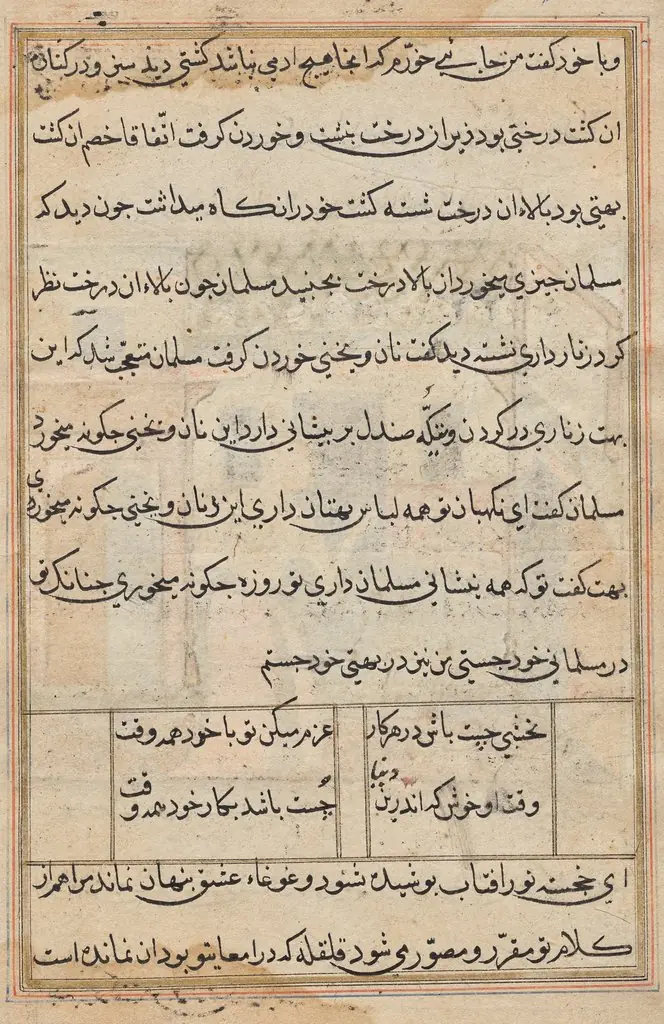 و با خود گفت من جایی خورم که انجا هیچ ادمی نباشد کشتی دید سبز و در کنان
ان کشت درختی بود زیر ان درخت بنشست و خوردن گرفت اتّفاقا خصم ان کشت
بهتی بود بالاء ان درخت شسته کشت خود را نکاه میداشت جون دید که
مسلمان جیزی میخورد از بالا درخت بجنبید مسلمان جون بالاء ان درخت نظر
کرد زنار داری نشسته دید کفت نان و یخنی خوردن کرفت مسلمان متعجّب شد که این
بهت زناری در کردن و تیکّه صندل بر بیشانی دارد این نان و یخنی جکونه میخورد
مسلمان کفت ای نکهبان تو همه لباس بهتان داری این نان و یخنی جکونه میخوری
بهت کفت تو که همه نشانی مسلمان داری تو روزه جکونه میخوری جنانک تو
در مسلمانی خود جستی من نیز در بهتی خود جستم
نخشبی جست باش در هر کار عزم میکن تو با خود همه وقت
وقت او خوش که اندرین دنیا جُست باشد بکار خود همه وقت
ای خجسته نور افتاب بوشیده نشود و غوغاء عشق بنهان نماند مرا هم از
کلام تو مقرّر و مصوّر می شود قلقله که در امعا یتو بود ان نمانده است